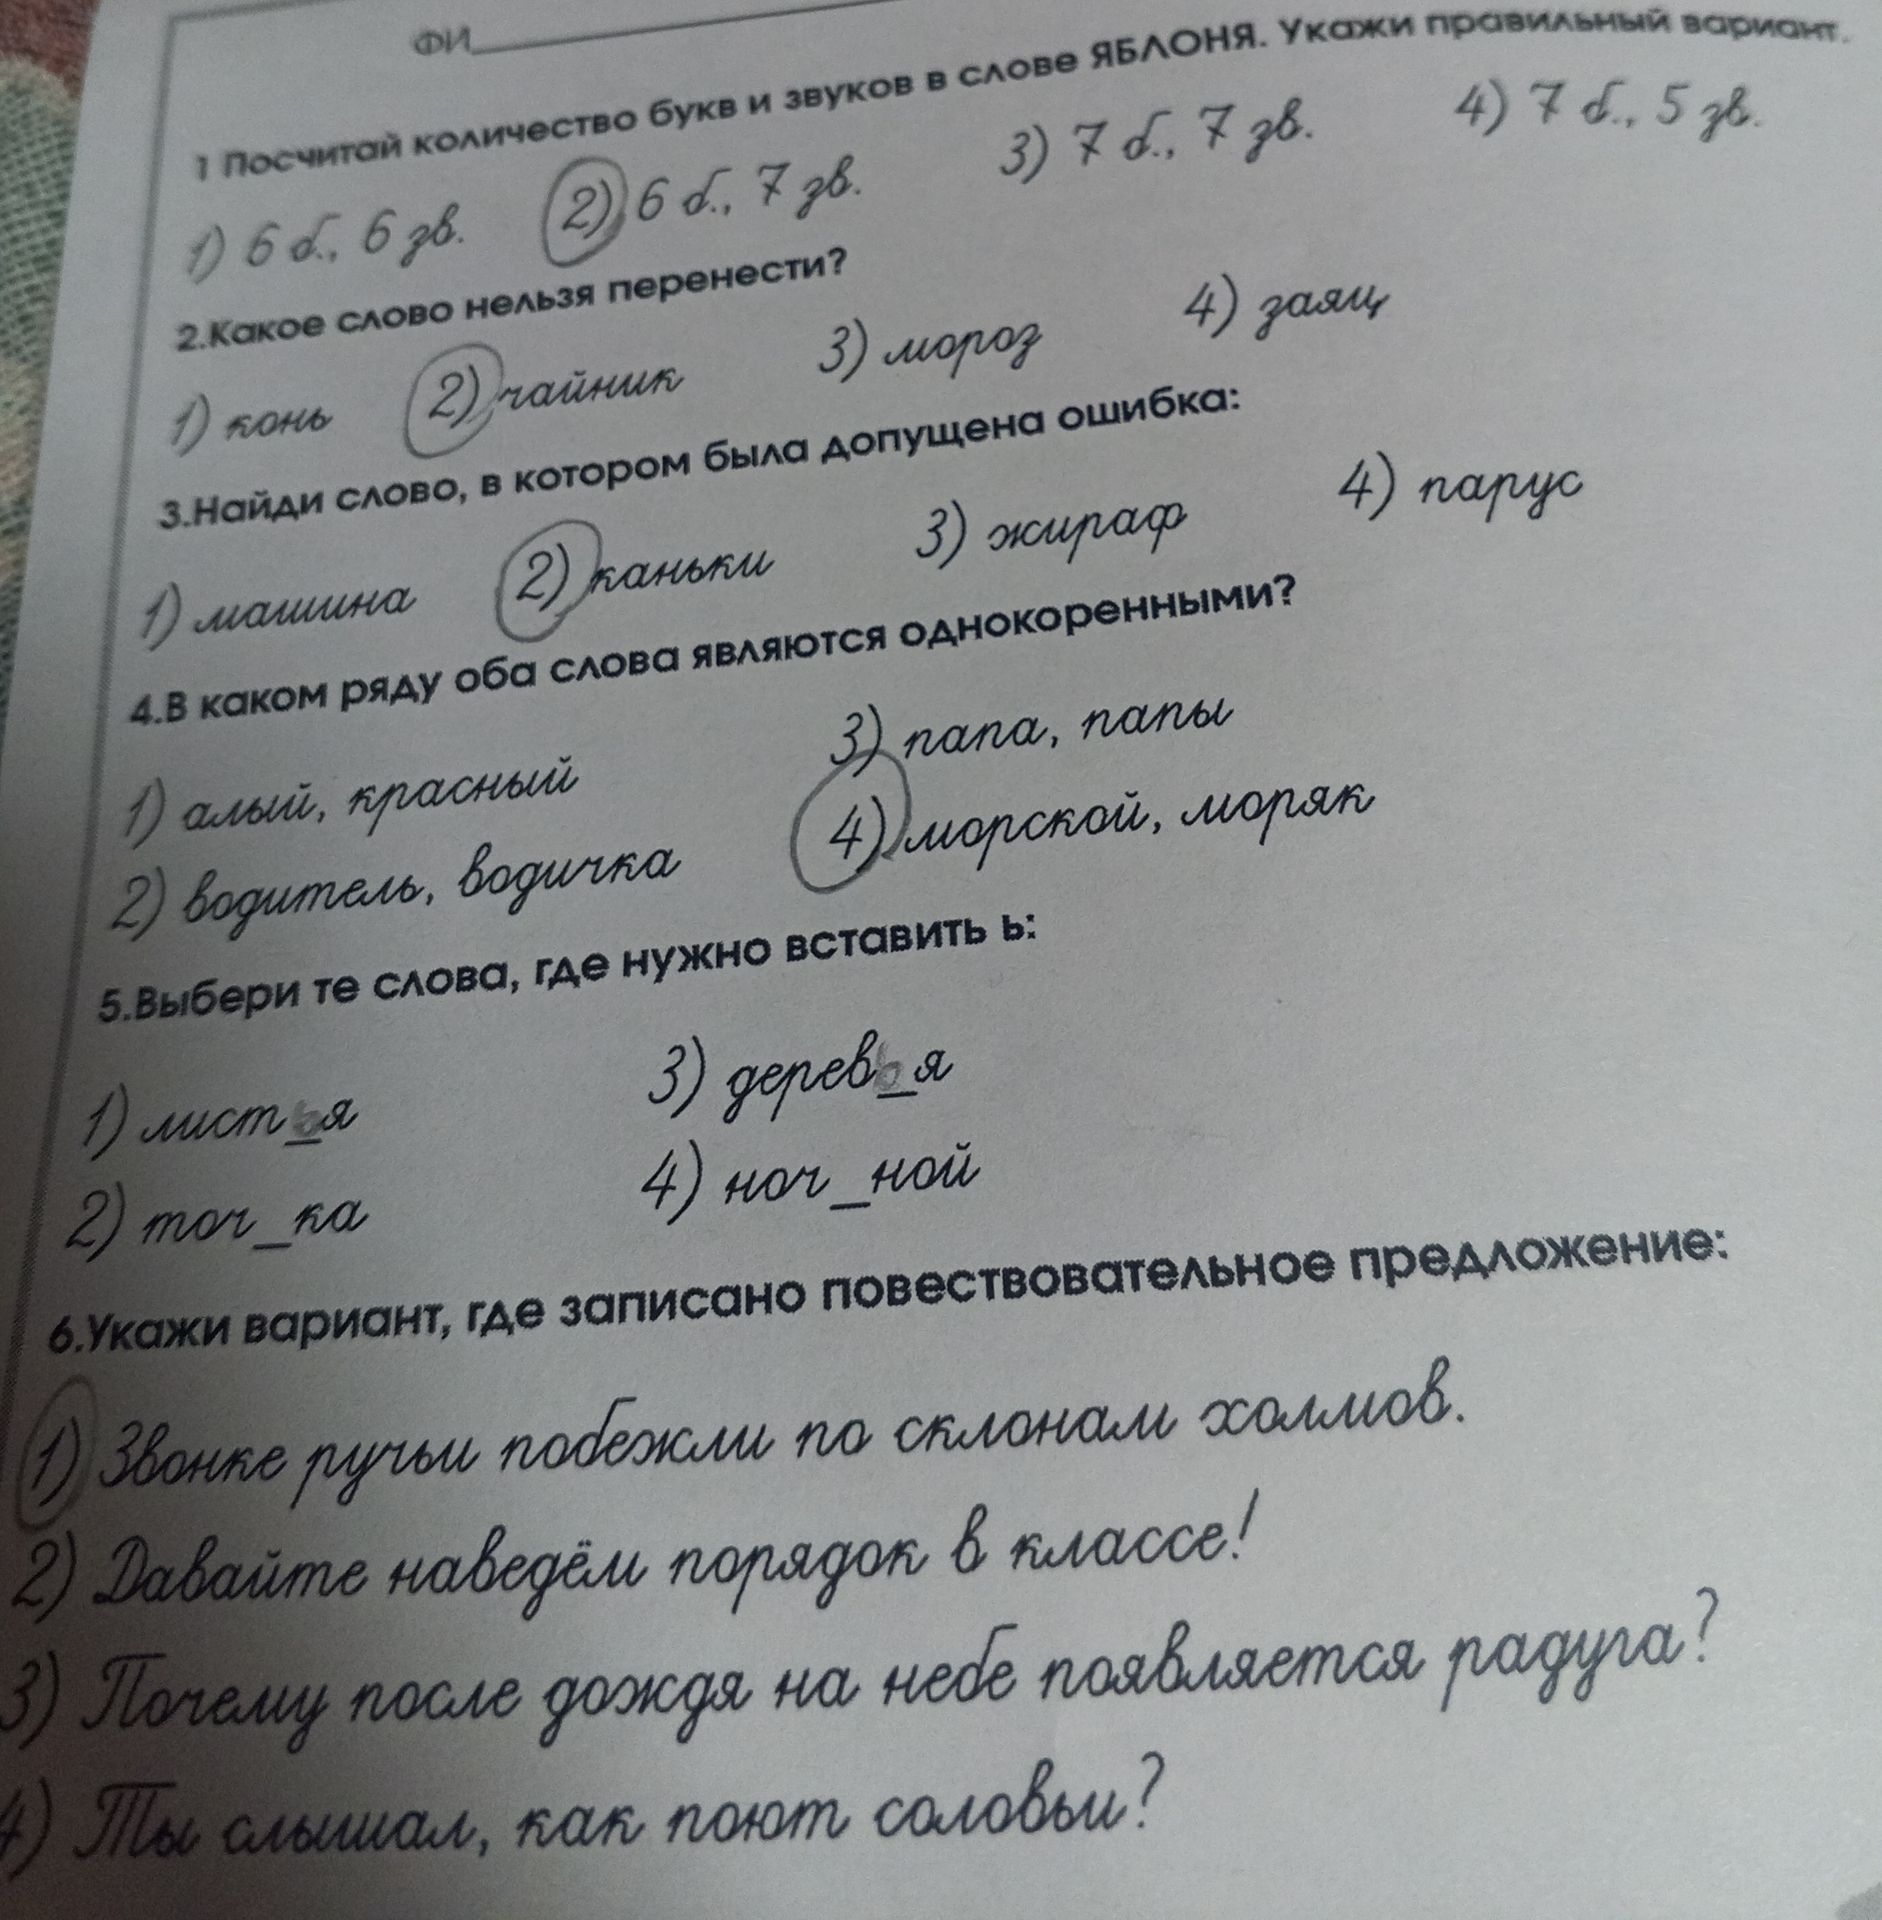 ФИ
1 Посчитай количество букв и звуков в слове ЯБЛОНЯ. Укажи правильный вариант.
1) 6 б., 6 зв. 2) 6 б., 7 зв. 3) 7 б., 7 зв. 4) 7 б., 5 зв.
2.Какое слово нельзя перенести?
1) конь 2) чайник 3) мороз 4) заяц
3.Найди слово, в котором была допущена ошибка:
1) машина 2) каньки 3) жираф 4) парус
4.В каком ряду оба слова являются однокоренными?
1) алый, красный 3) папа, папы
2) водитель, водичка 4) морской, моряк
5.Выбери те слова, где нужно вставить ь:
1) листья 3) деревья
2) точ_ка 4) ноч_ной
6.Укажи вариант, где записано повествовательное предложение:
1) Звонке ручьи побежли по склонам холмов.
2) Давайте наведём порядок в классе!
3) Почему после дождя на небе появляется радуга?
4) Ты слышал, как поют соловьи?